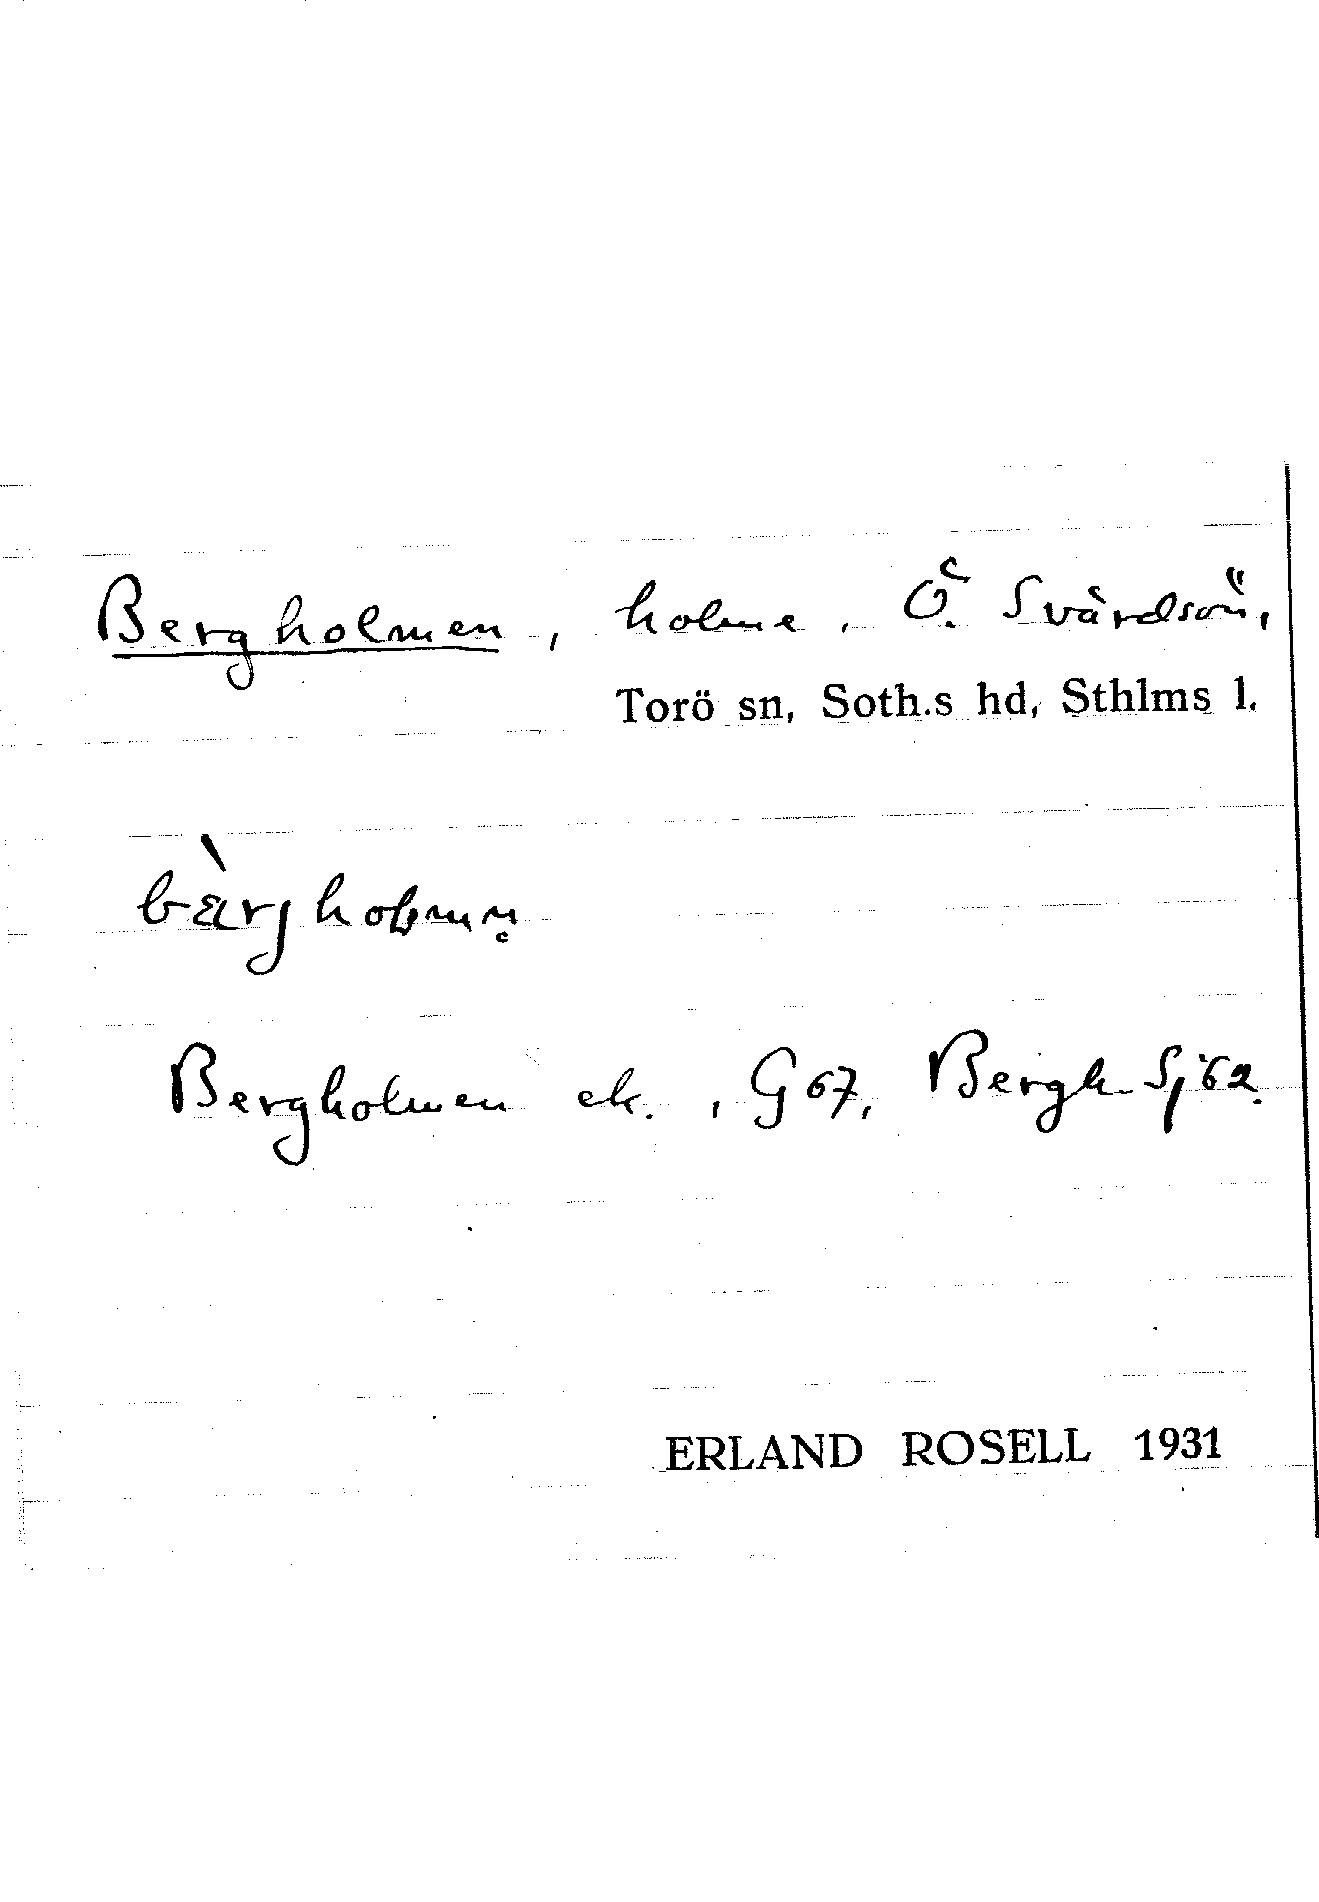 Bergholmen, holme, Ö. Svärdsön,
Torö sn, Soth.s hd, Sthlms l.
bàrjholmn̥
Bergholmen ek., G 67, Bergh- Sj 62.
ERLAND ROSELL 1931